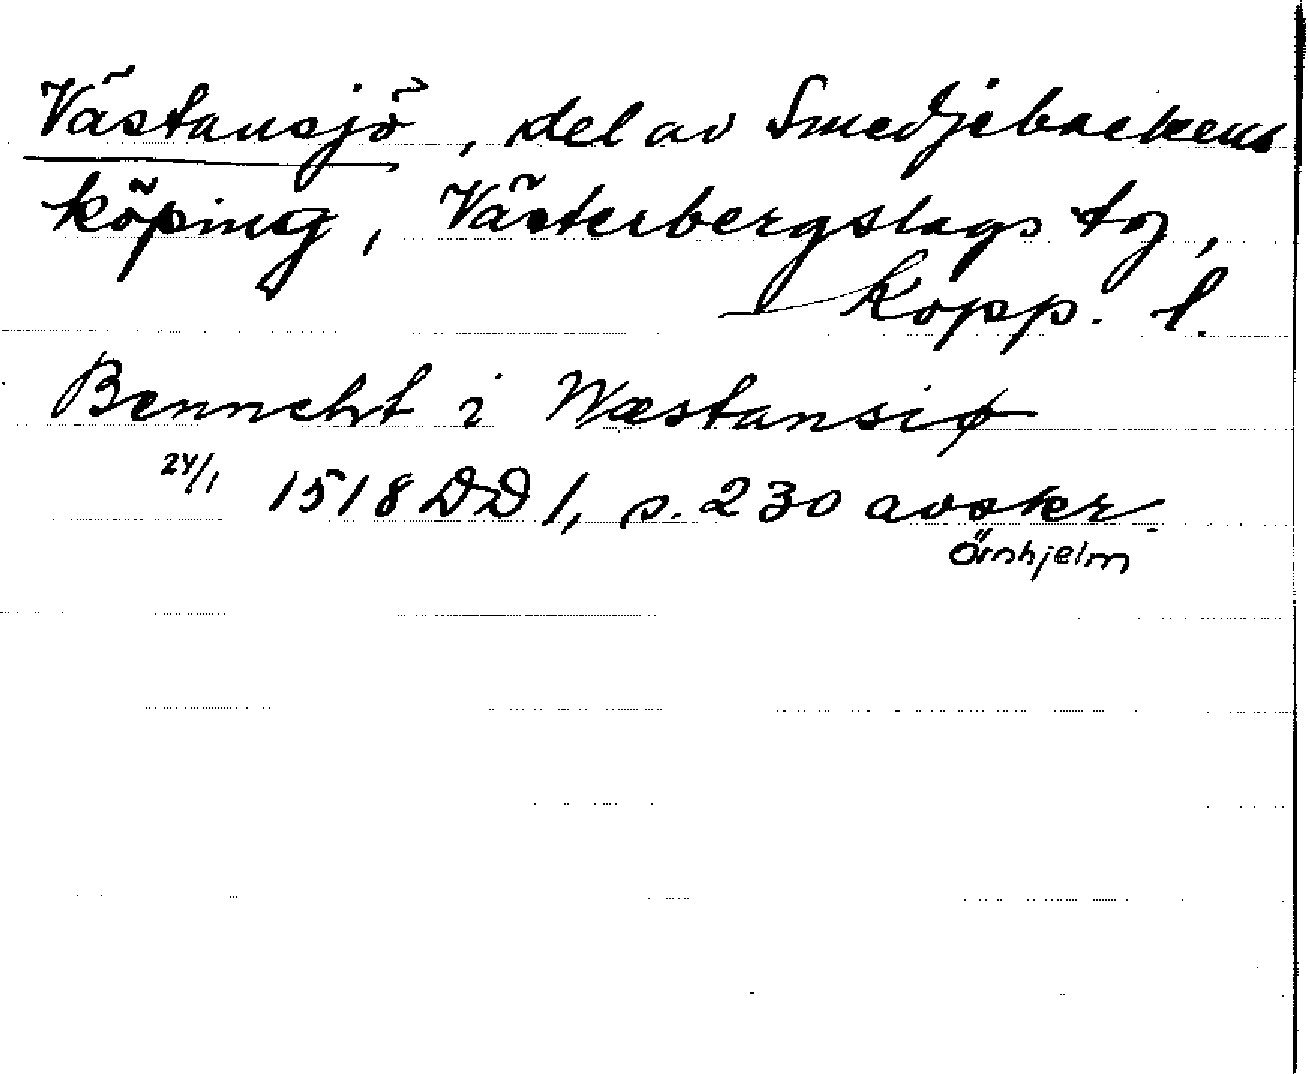 Västansjö, del av Smedjebackens
köping, Västerbergslags tg,
Kopp. l.
Benneht i Wæstansiø
24/1 1518 DD 1, s. 230 avskr.
Örnhjelm